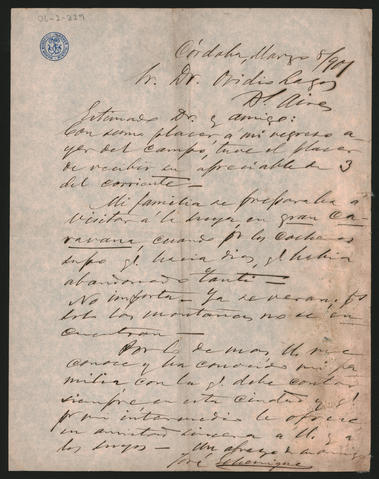 06-2-229
Córdoba, Marzo 8/901
Sr. Dr. Ovidio Lagos
Bs. Aires
Estimado Dr. y amigo:
Con sumo placer a mi regreso a
yer del campo, tuve el placer
de recibir su apreciable de 3
del corriente—
Mi familia se preparaba a
visitar a la suya en gran Ca-
ravana, cuando por los cocheros
supo qe. hacia dias, qe. habia
abandonado
No importa. Ya se veran, pr.
esto las montañas no se en
cuentran—
Por lo demas, U. me
conoce y ha conocido mi fa-
milia con la qe. debe contar
siempre en esta ciudad y qe.
pr. mi intermedio le ofrece
su amistad sincera a U. y a
los suyos— Un abrazo de su amigo
José Echenique